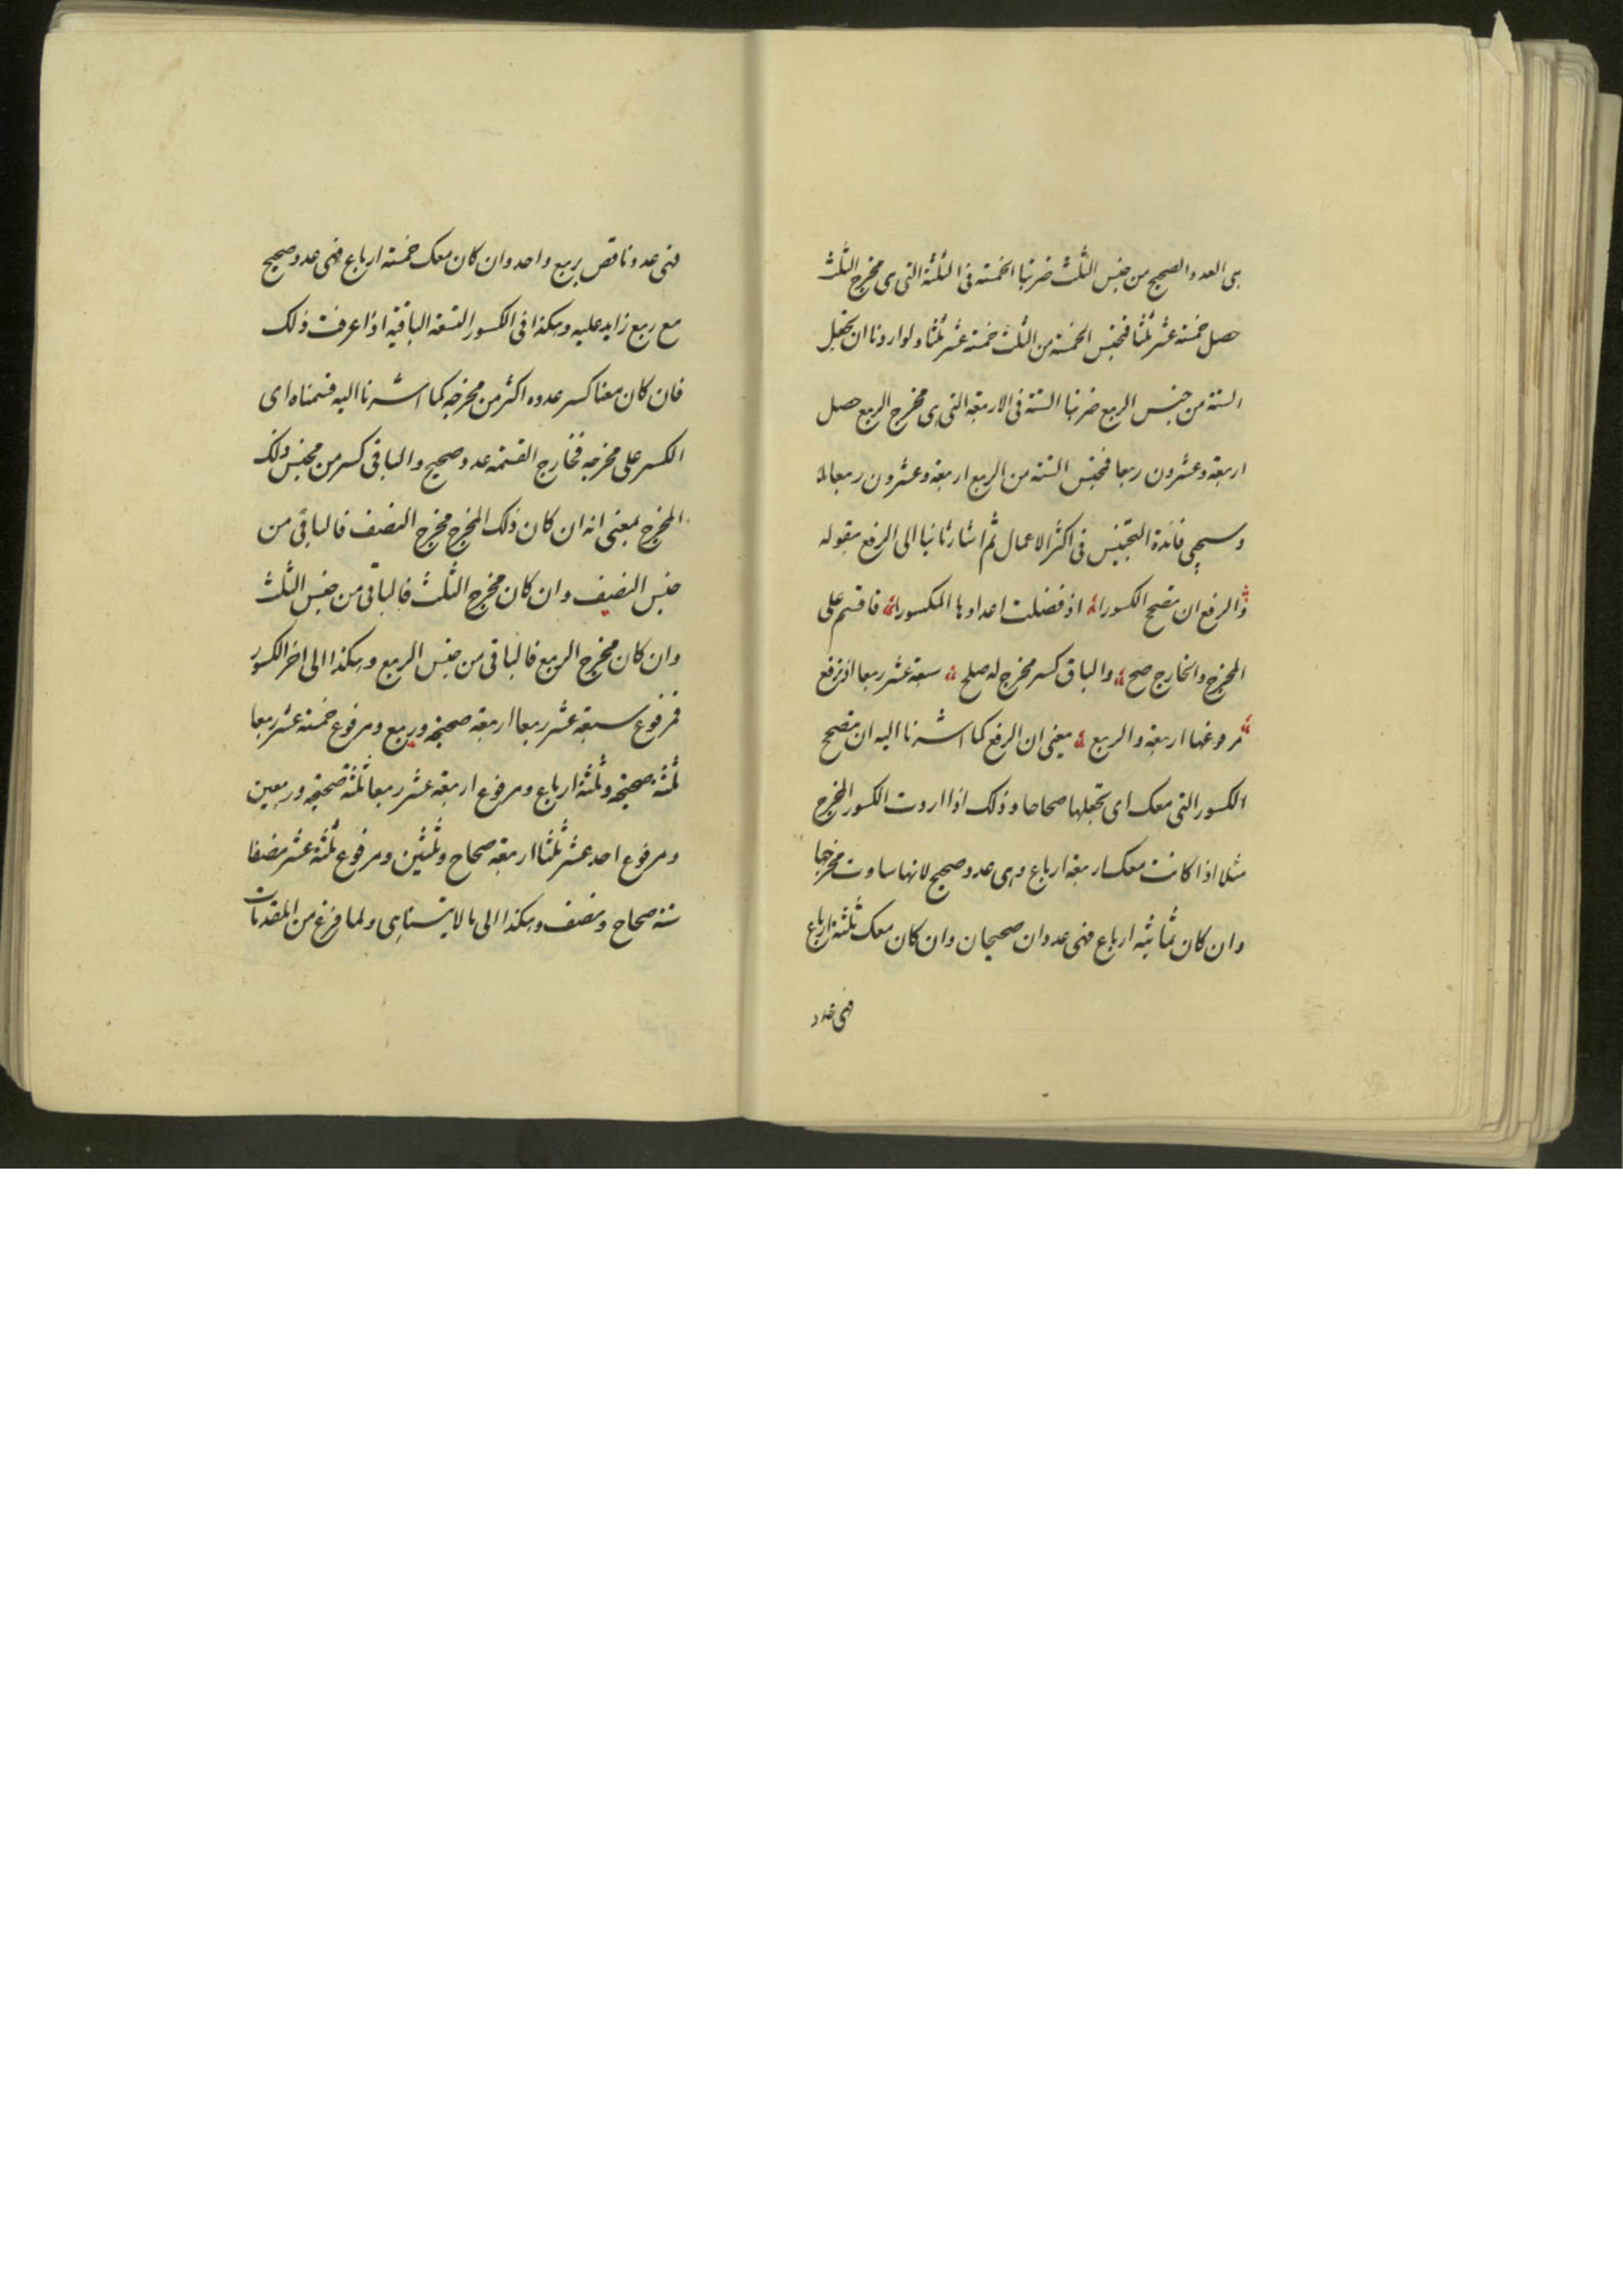 هى العدد الصحيح من جنس الثلث ضربنا الخمسة فى الثلثة التى هى مخرج الثلث
حصل خمسة عشر ثلثا فجنس الخمسة من الثلث خمسة عشر ثلثا ولو اردنا ان نجعل
الستة من جنس الربع ضربنا الستة فى الاربعة التى هى مخرج الربع حصل
اربعة وعشرون ربعا فجنس الستة من الربع اربعة وعشرون ربعا
وسيجى فائدة التجنيس فى اكثر الاعمال ثم اشار ثانيا الى الرفع بقوله
والرفع ان تصح الكسورا اذ فضلت اعدادها المكسورا فاقسم على
المخرج والخارج صح والباق كسر مخرج له صلح سبعة عشر ربعا اذ ترفع
مرفوعها اربعة والربع يعنى ان الرفع كما اشرنا اليه ان تصحح
الكسور التى معك اى تجعلها صحاحا وذلك اذا اردت الكسور المخرج
مثلا اذا كانت معك اربعة ارباع وهى عدد صحيح لانها ساوت مخرجها
وان كان ثمانية ارباع فهى عددان صحيحان وان كان معك ثلثة ارباع
فهى عدد
فهى عدد ناقص بربع واحد وان كان معك خمسة ارباع فهى عدد صحيح
مع ربع زايد عليه وهكذا فى الكسور التسعة الباقية اذا عرفت ذلك
فان كان معنا كسر عدده اكثر من مخرجه كما اشرنا اليه قسمناه اى
الكسر على مخرجه فخارج القسمة عدد صحيح والباقى كسر من مجنس ذلك
المخرج بمعنى انه ان كان ذلك المخرج مخرج النصف فالباقى من
جنس النصف وان كان مخرج الثلث فالباقى من جنس الثلث
وان كان مخرج الربع فالباقى من جنس الربع وهكذا الى اخر الكسور
فمرفوع سبعة عشر ربعا اربعة صحيحة وربع ومرفوع خمسة عشر ربعا
ثلثة صحيحة وثلثة ارباع ومرفوع اربعة عشر ربعا ثلثة صحيحة وربعين
ومرفوع احد عشر ثلثا اربعة صحاح وثلثين ومرفوع ثلثة عشر نصفا
ستة صحاح ونصف وهكذا الى ما لا يتناهى ولما فرغ من المقدمات